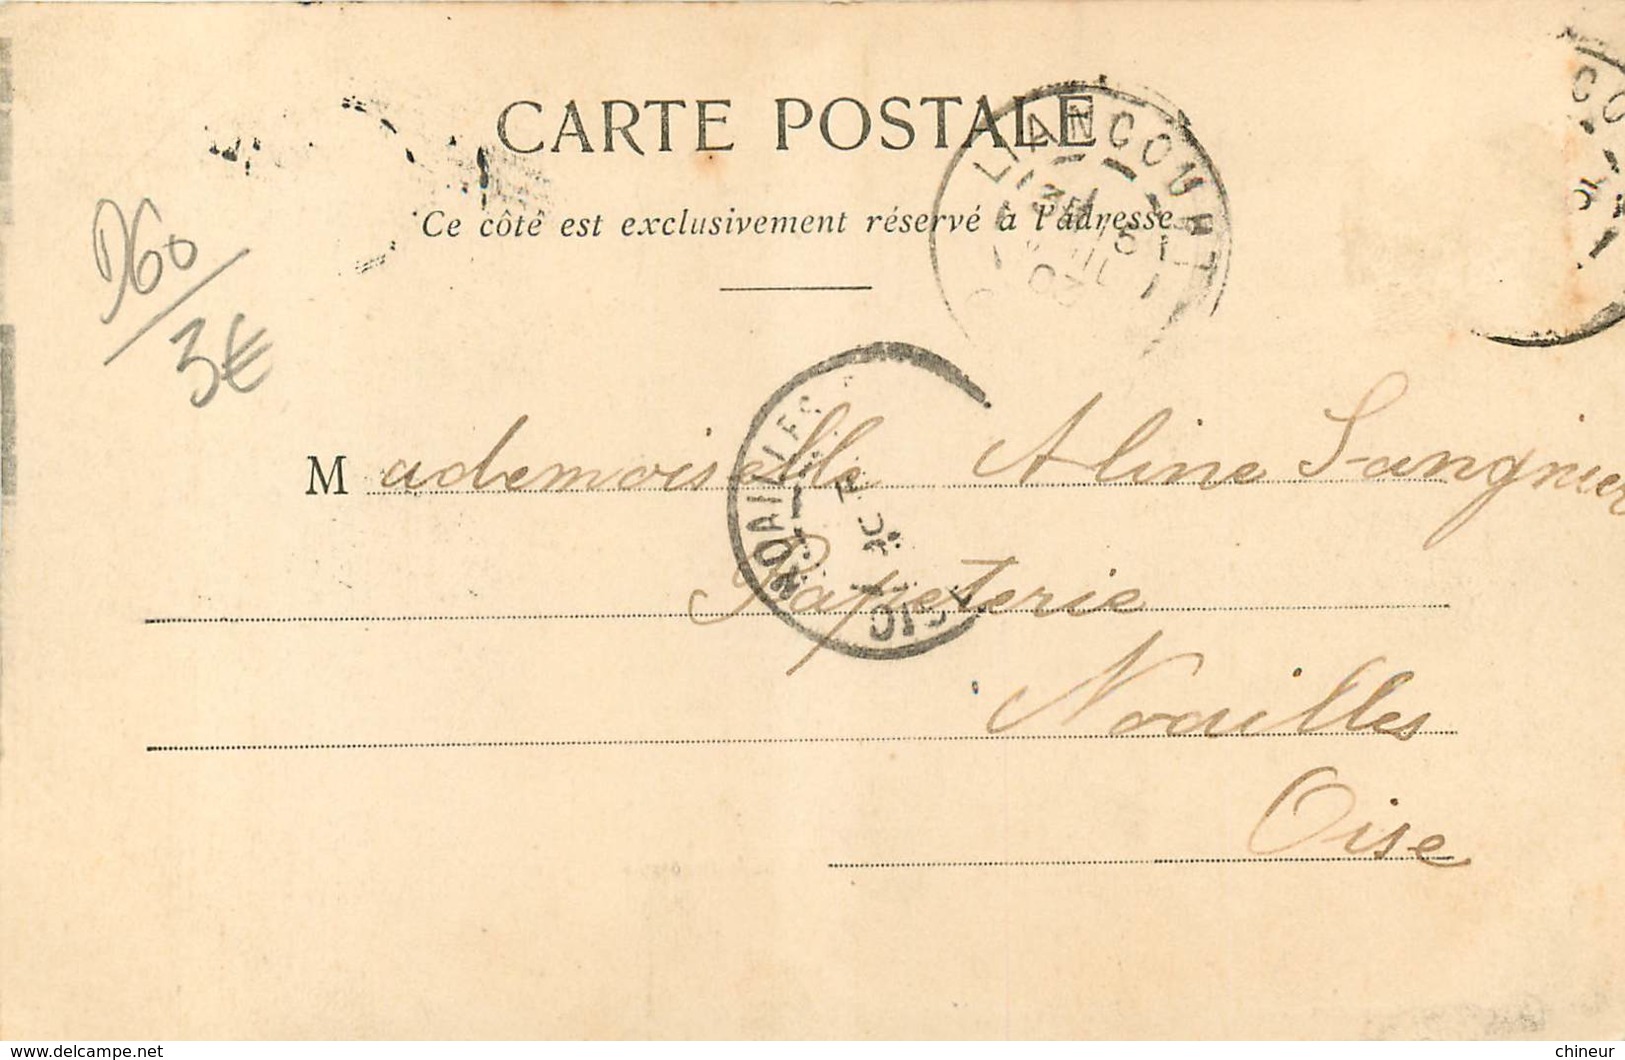 CARTE POSTALE
LIANCOURT
CO
Ce côté est exclusivement réservé à l'adresse
D60
3€
03
NOAILLES
OISE
Mademoiselle Aline Sangnier
Papeterie
Noailles
Oise
http://www.delcampe.net
chineur